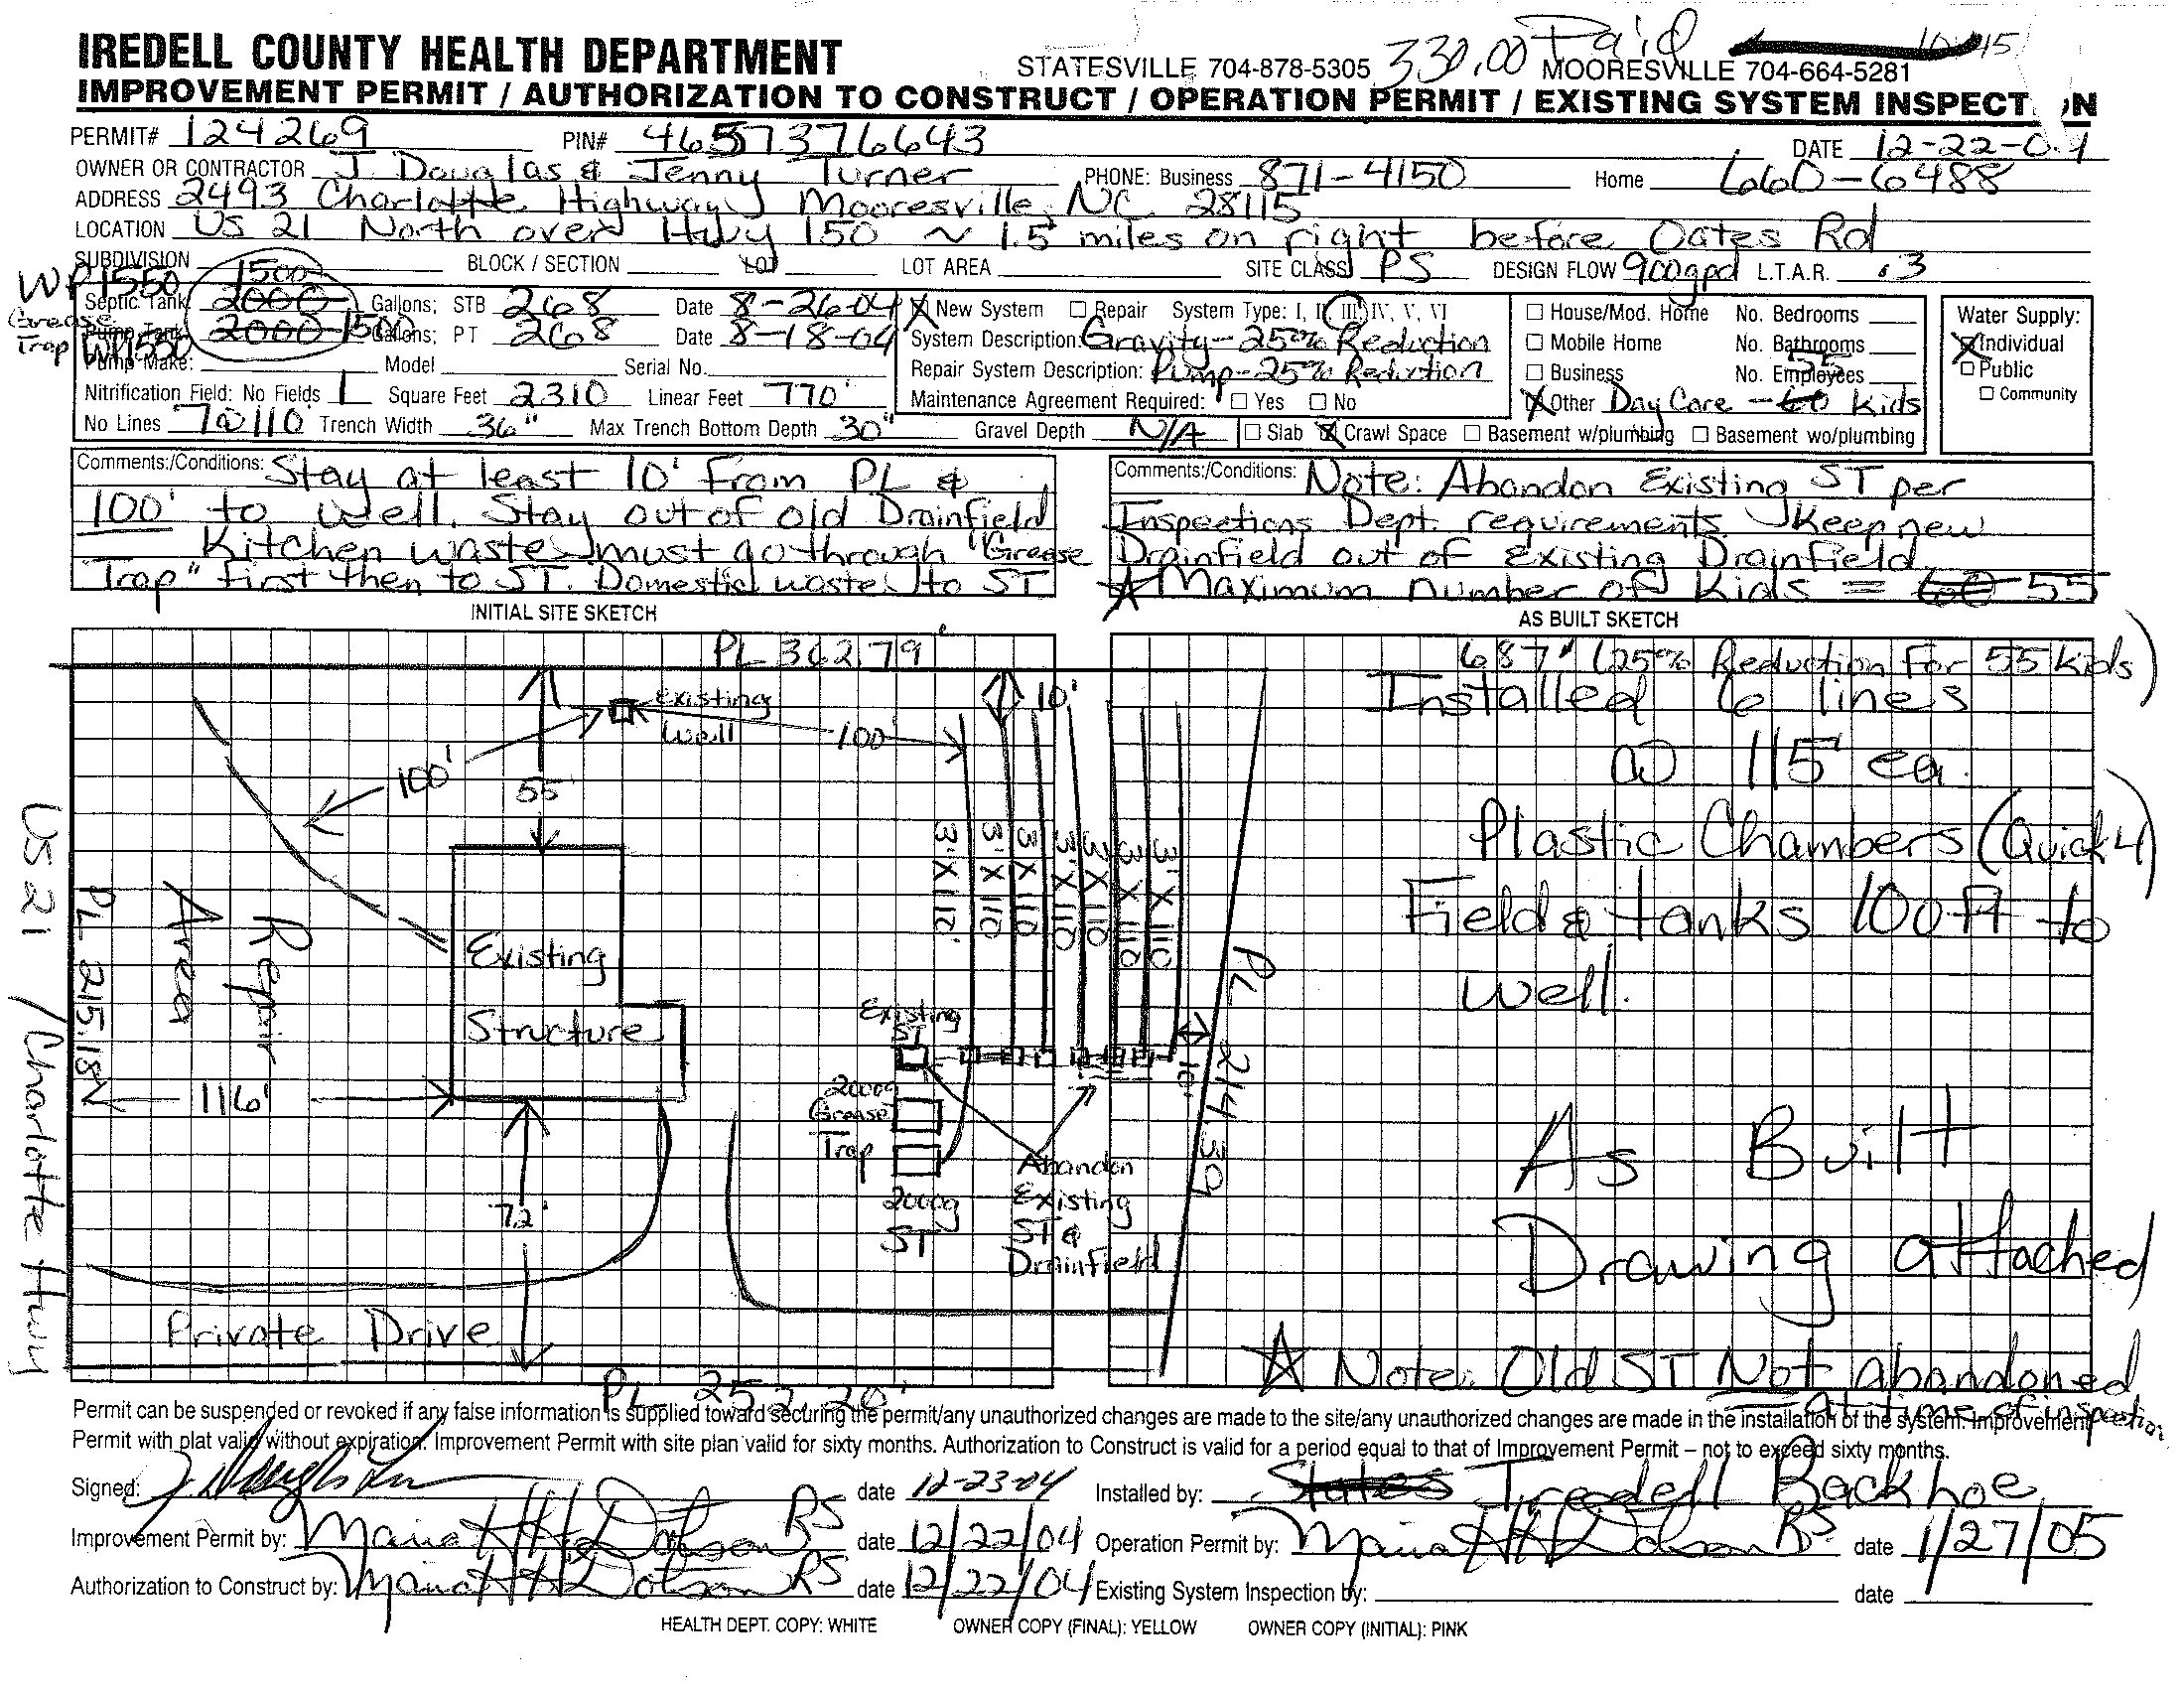 330.00 Paid
IREDELL COUNTY HEALTH DEPARTMENT STATESVILLE 704-878-5305 MOORESVILLE 704-664-5281
IMPROVEMENT PERMIT / AUTHORIZATION TO CONSTRUCT / OPERATION PERMIT / EXISTING SYSTEM INSPECT N
PERMIT# 124269 PIN# 4657376643 DATE 12-22-04
OWNER OR CONTRACTOR J. Douglas & Jenny Turner PHONE: Business 871-4150 Home 660-6488
ADDRESS 2493 Charlotte Highway Mooresville, NC 28115
LOCATION US 21 North over Hwy 150 ~ 1.5 miles on right before Oates Rd
SUBDIVISION BLOCK / SECTION LOT LOT AREA SITE CLASS PS DESIGN FLOW 900gpd L.T.A.R. .3
WP1550 1500
Septic Tank 2000 Gallons; STB 268 Date 8-26-04
Grease Trap Pump Tank 2000 1500 Gallons; PT 268 Date 8-18-04
WP1550
Pump Make: Model Serial No.
Nitrification Field: No Fields 1 Square Feet 2310 Linear Feet 770'
No Lines 7@110 Trench Width 36" Max Trench Bottom Depth 30" Gravel Depth N/A
X New System Repair System Type: I, II, III, IV, V, VI
System Description: Gravity-25% Reduction
Repair System Description: Pump-25% Reduction
Maintenance Agreement Required: Yes No
Slab X Crawl Space Basement w/plumbing Basement wo/plumbing
House/Mod. Home No. Bedrooms
Mobile Home No. Bathrooms
Business No. Employees
55
X Other Day Care - 60 Kids
Water Supply:
X Individual
Public
Community
Comments:/Conditions: Stay at least 10' from PL &
100' to well. Stay out of old Drainfield
Kitchen waste must go through "Grease
Trap" first then to ST. Domestic waste to ST
Comments:/Conditions: Note: Abandon Existing ST per
Inspections Dept. requirements. Keep new
Drainfield out of existing Drainfield.
☆ Maximum number of Kids = 60 55
INITIAL SITE SKETCH
PL 362.79'
Existing Well
10'
100'
100'
55'
3' X 110'
3' X 110
3' X 110
3' X 110
3' X 110
3' X 110
3' X 110
US 21 / Charlotte Hwy
PL 215.18'
Repair Area
Existing Structure
Existing ST
PL 214.39
10'
116'
2000g Grease Trap
72'
2000g ST
Abandon Existing ST & Drainfield
Private Drive
PL 252.20'
AS BUILT SKETCH
687' (25% Reduction for 55 kids)
Installed 6 lines
@ 115' ea.
Plastic Chambers (Quick 4)
Field & tanks 100 ft to
well.
As Built
Drawing attached
☆ Note: Old ST Not abandoned
at time of inspection
Permit can be suspended or revoked if any false information is supplied toward securing the permit/any unauthorized changes are made to the site/any unauthorized changes are made in the installation of the system. Improvement
Permit with plat valid without expiration. Improvement Permit with site plan valid for sixty months. Authorization to Construct is valid for a period equal to that of Improvement Permit – not to exceed sixty months.
Signed: date 12-23-04 Installed by: States Iredell Backhoe
Improvement Permit by: Maria H Dobson RS date 12/22/04 Operation Permit by: Maria H Dobson RS date 1/27/05
Authorization to Construct by: Maria H Dobson RS date 12/22/04 Existing System Inspection by: date
HEALTH DEPT. COPY: WHITE OWNER COPY (FINAL): YELLOW OWNER COPY (INITIAL): PINK